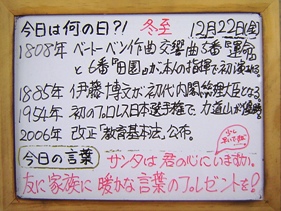 今日は何の日?! 冬至 12月22日(金)
1808年 ベートーベン作曲 交響曲5番『運命』
と 6番『田園』が本人の指揮で初演される。
1885年 伊藤博文が初代内閣総理大臣となる。
1954年 初のプロレス日本選手権で、力道山が優勝。
2006年 改正「教育基本法」公布。
今日の言葉
サンタは君の心にいますか。
友に家族に 暖かな言葉のプレゼントを!